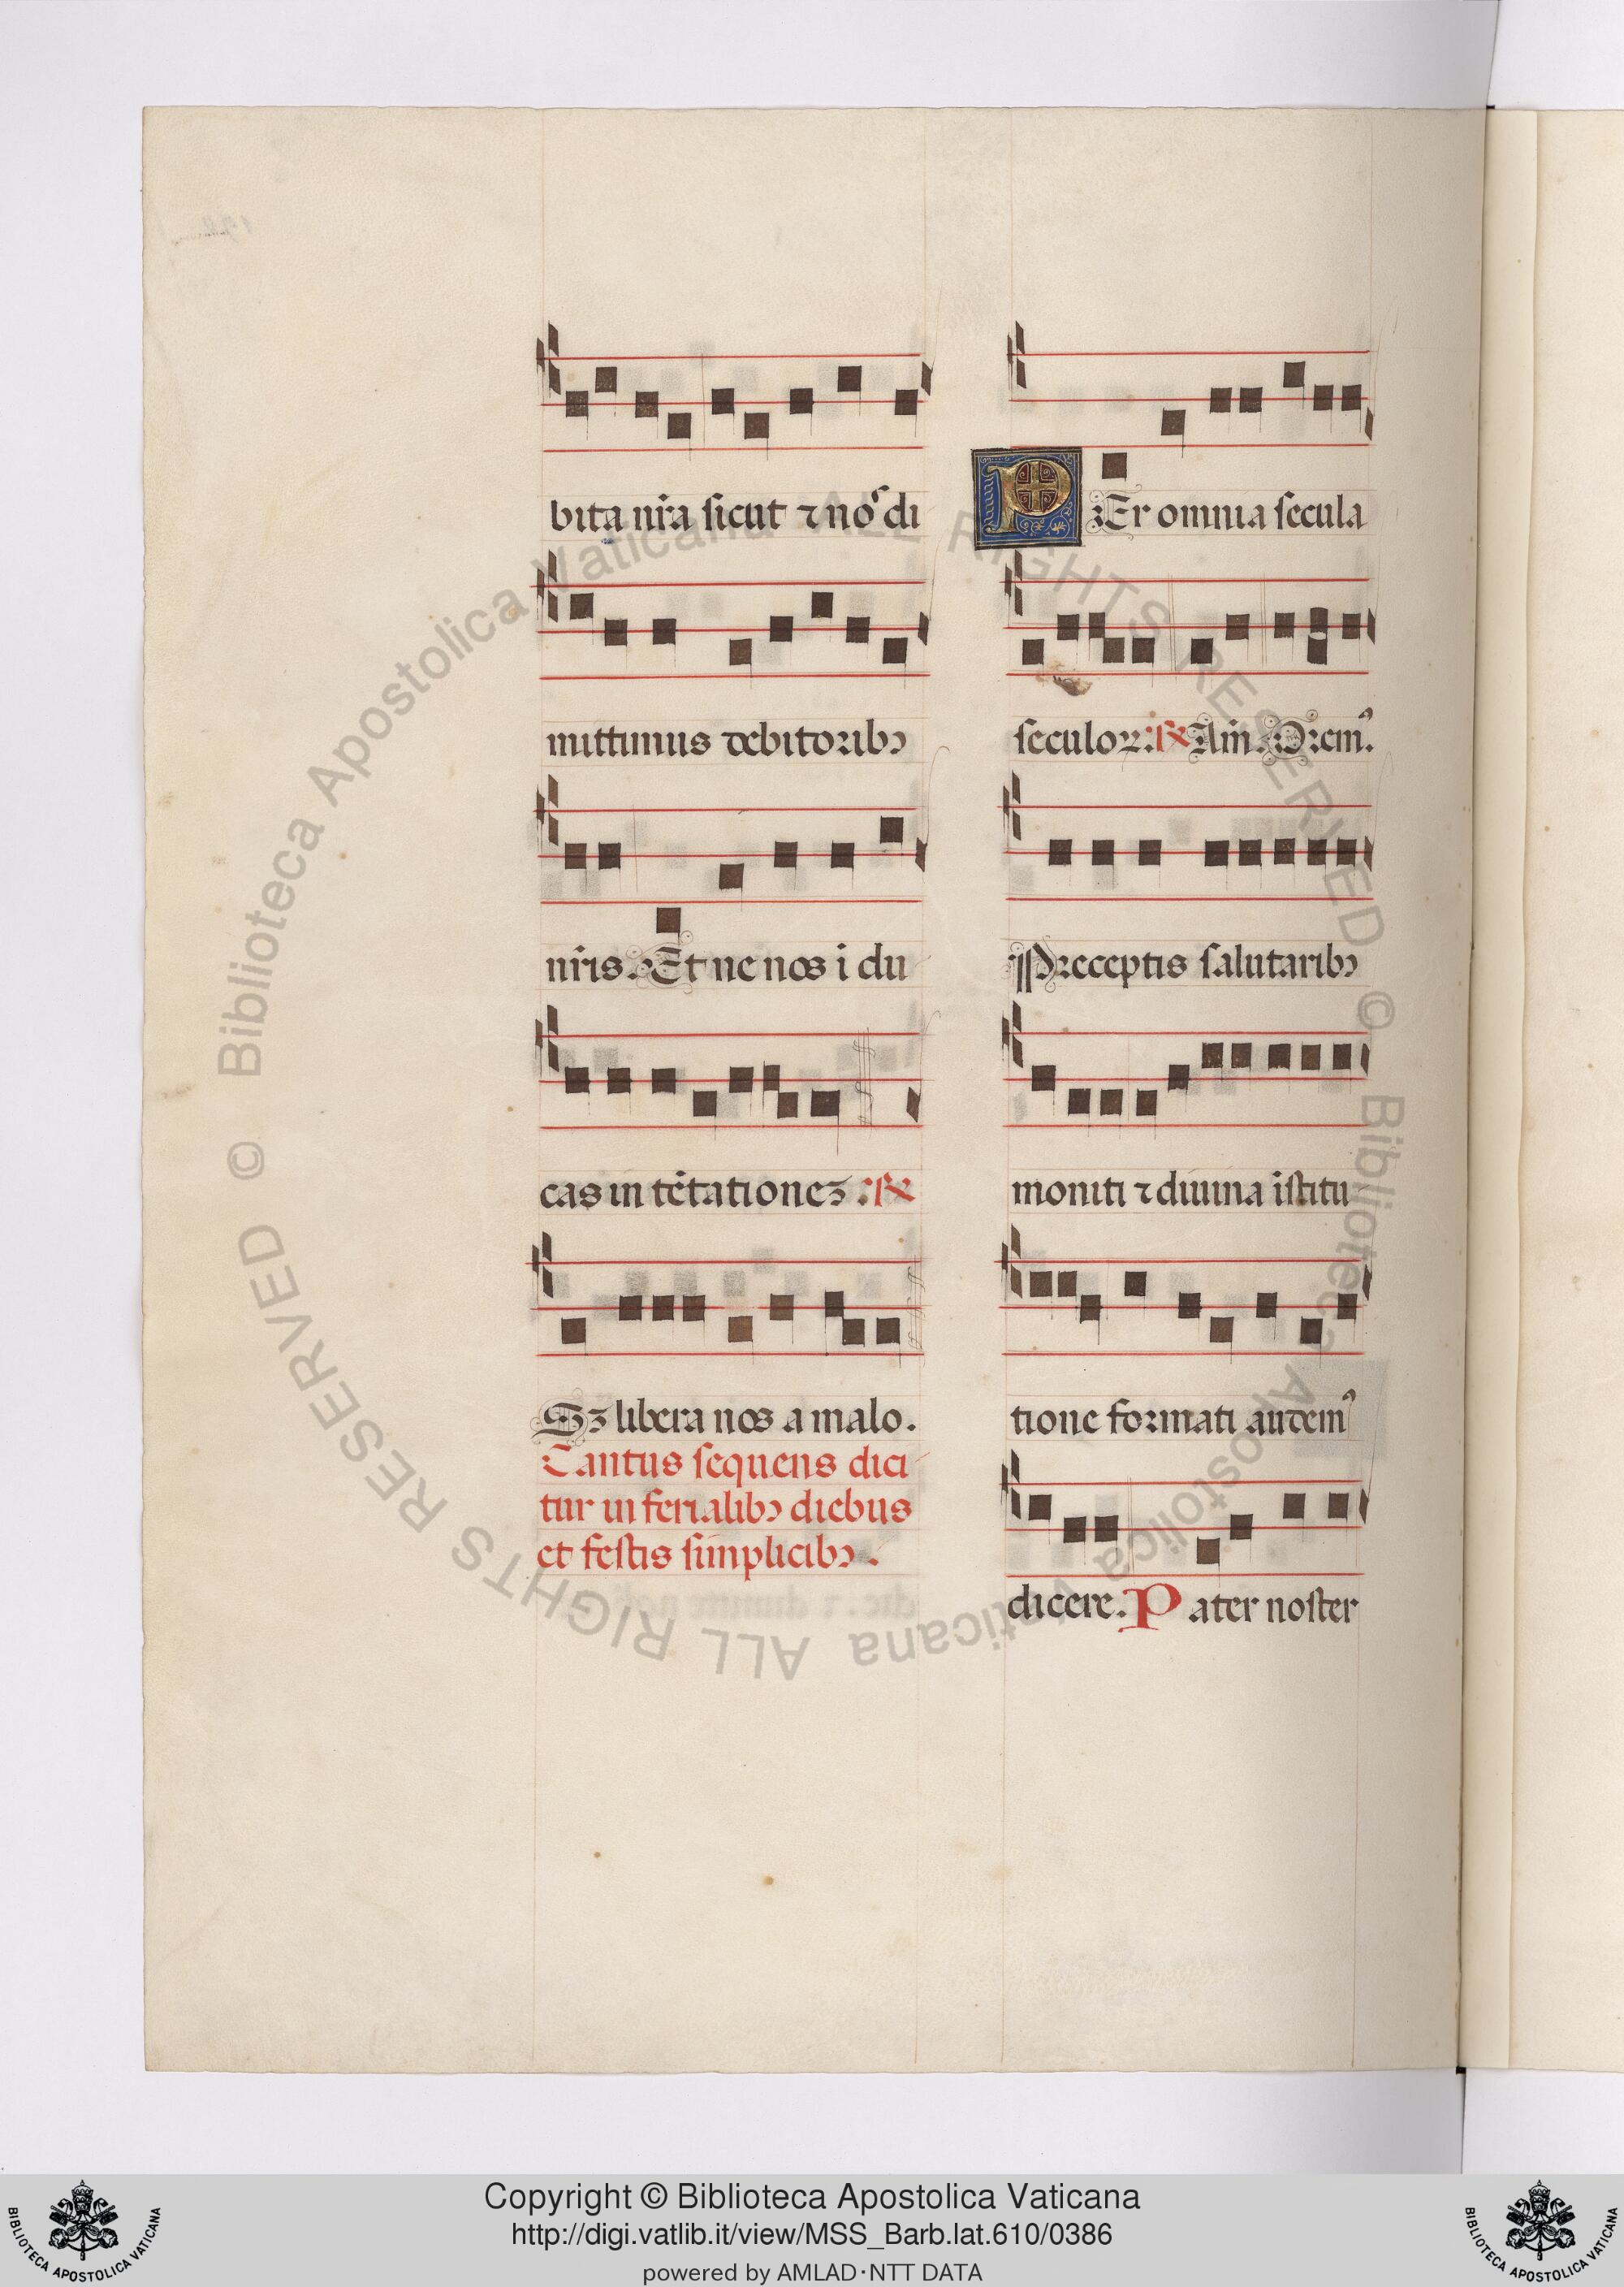 bita nr̄a sicut ⁊ noˢ di
mittimus debitoribꝫ
nr̄is. Et ne nos i du
cas in tētationeꝫ. ℟
Sꝫ libera nos a malo.
Cantus sequens dici
tur in ferialibꝫ diebus
et festis simplicibꝫ.
PEr omnia secula
seculoꝝ. ℟ Am̄. Oremꝰ.
Preceptis salutaribꝫ
moniti ⁊ diuina īstitu
tione formati audemꝰ
dicere. Pater noster
© Biblioteca Apostolica Vaticana ALL RIGHTS RESERVED © Biblioteca Apostolica Vaticana ALL RIGHTS RESERVED
BIBLIOTECA APOSTOLICA VATICANA
Copyright © Biblioteca Apostolica Vaticana
http://digi.vatlib.it/view/MSS_Barb.lat.610/0386
powered by AMLAD·NTT DATA
BIBLIOTECA APOSTOLICA VATICANA